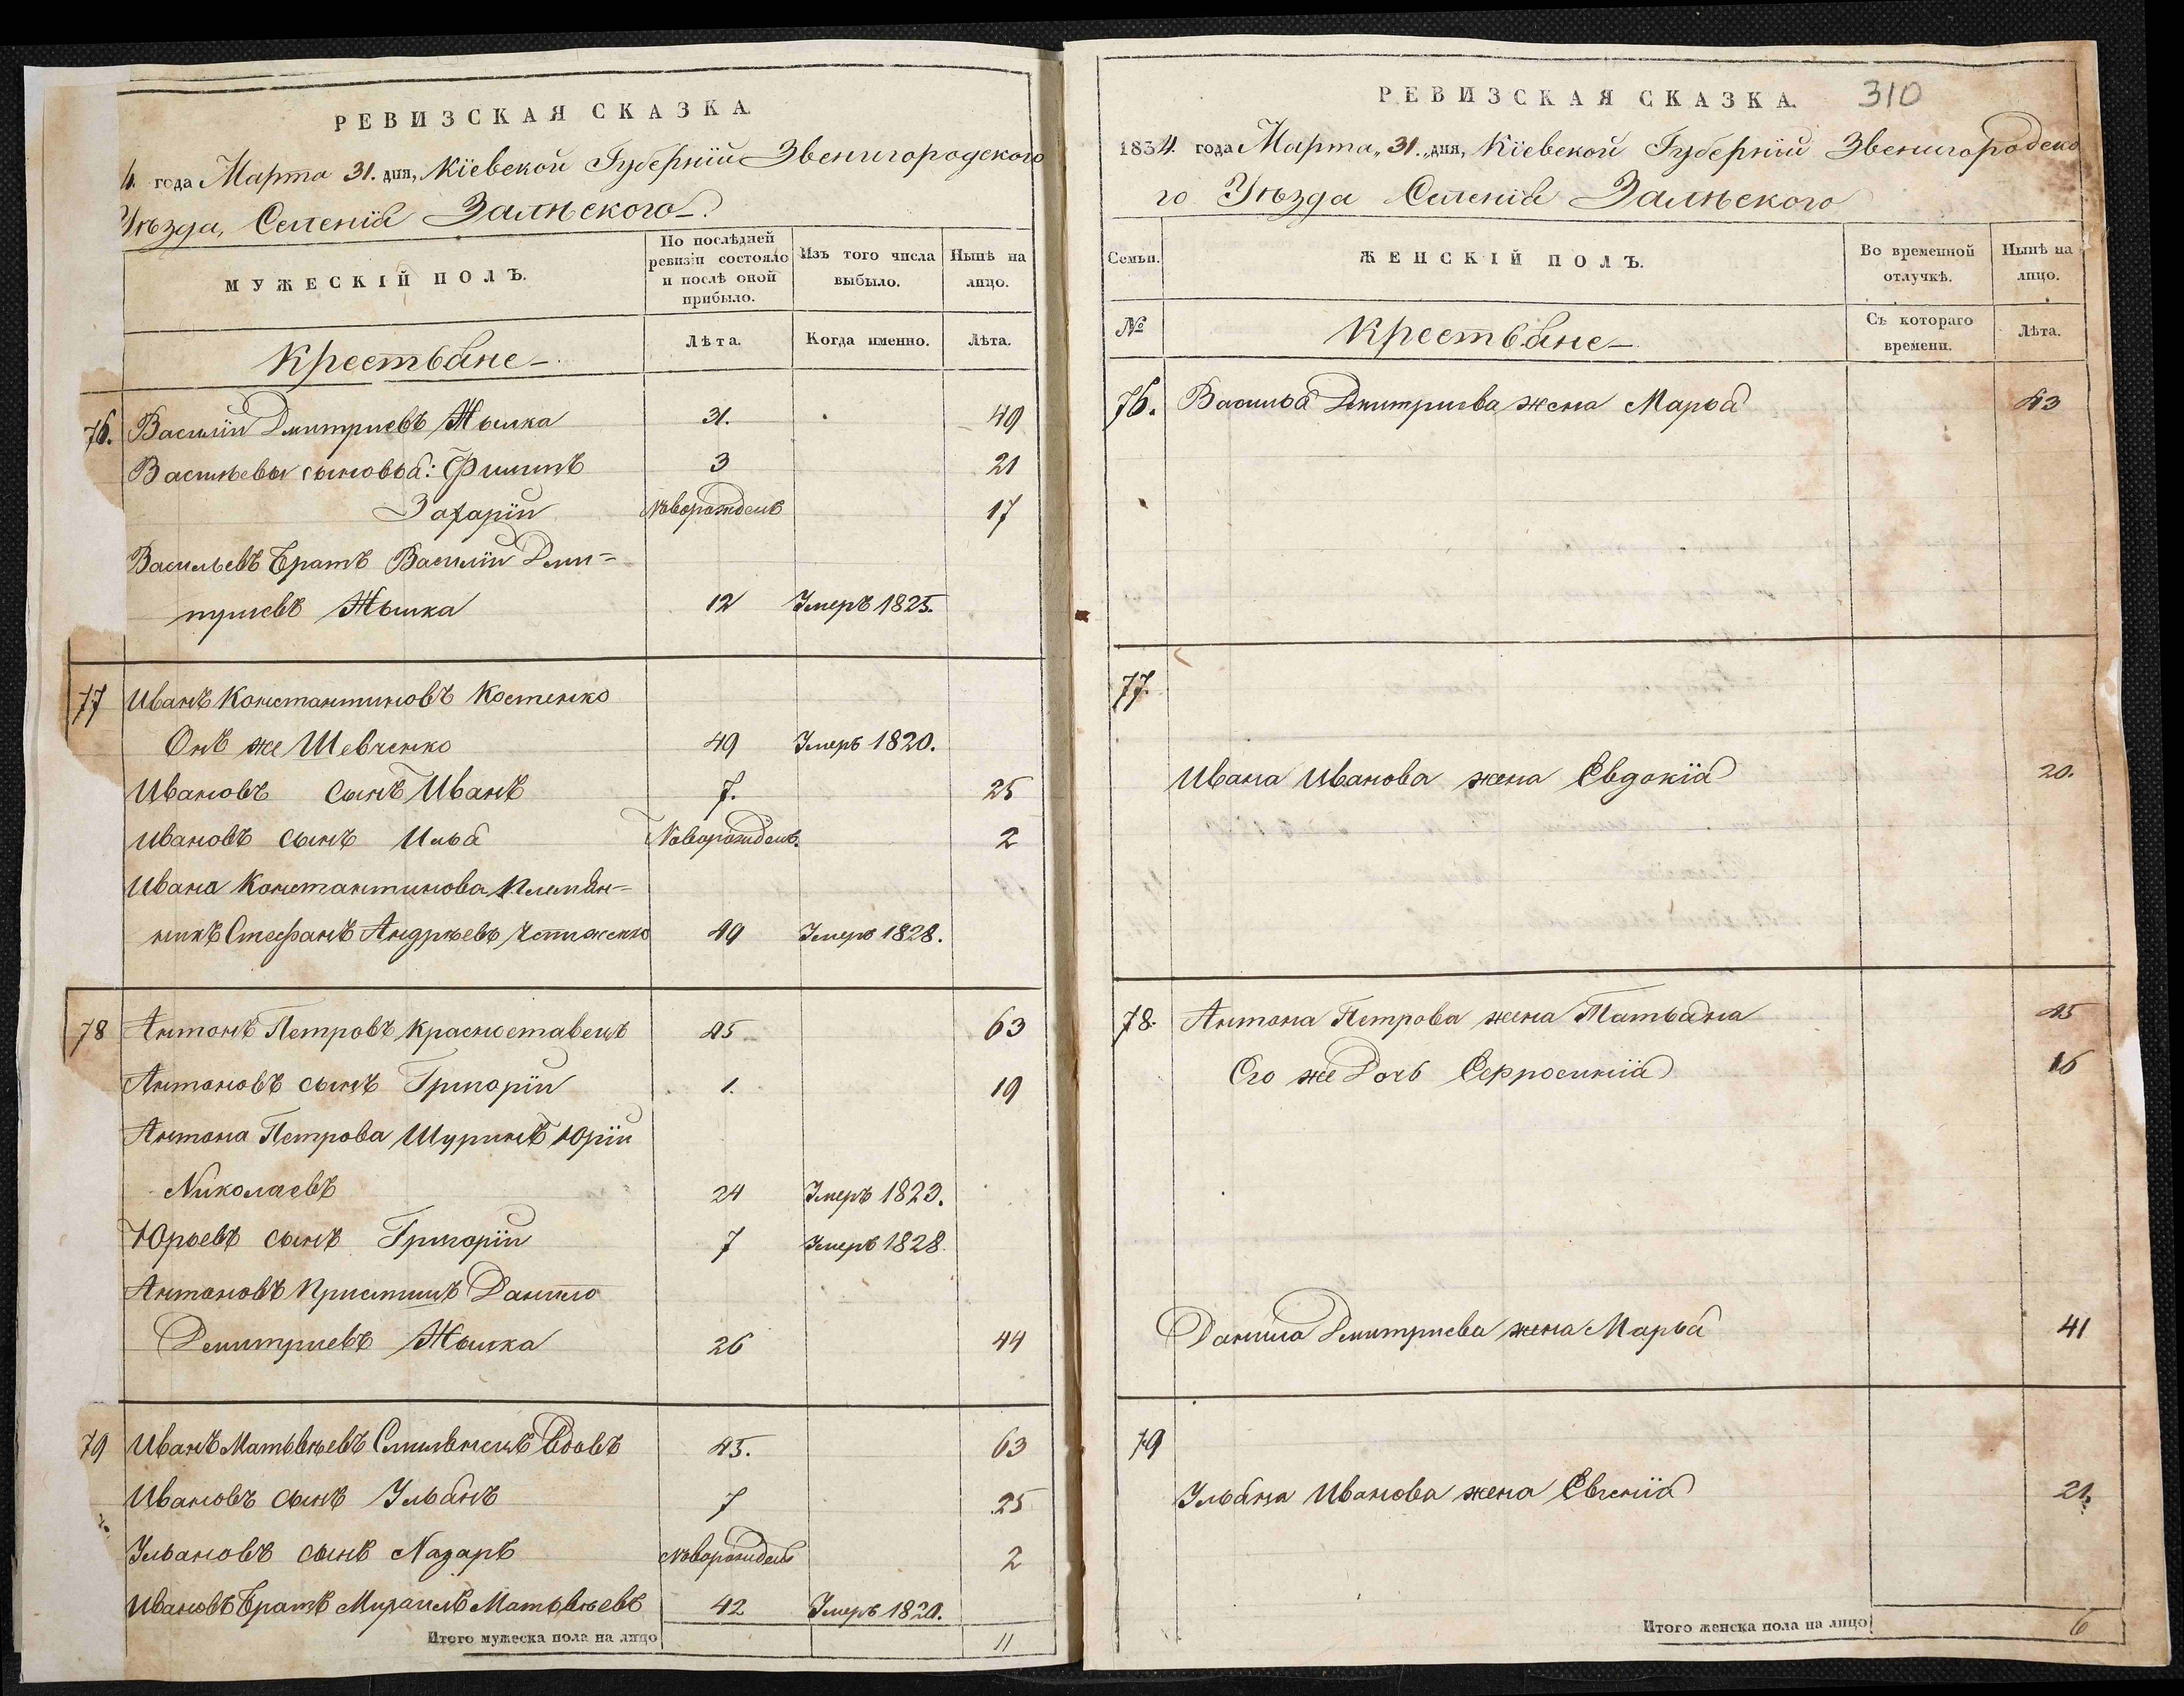 РЕВИЗСКАЯ СКАЗКА
4. года Марта 31. дня, Кіевской Губерніи Звенигородского
Уѣзда, Селенія Залѣского
МУЖЕСКІЙ ПОЛЪ.
По послѣдней ревизіи состояло и послѣ оной прибыло.
Изъ того числа выбыло.
Нынѣ на лицо.
Крестьяне
Лѣта.
Когда именно.
Лѣта.
76. Василій Дмитріевъ 31. 49
Васильевы сыновья: Филипъ 3 21
Захарій Новорожденъ 17
Васильевъ Братъ Василій Дми=
тріевъ 12 Умеръ 1825.
77 Иванъ Константиновъ Костенко
Онъ же Шевченко 49 Умеръ 1820.
Ивановъ сынъ Иванъ 7. 25
Ивановъ сынъ Илья Новорожденъ. 2
Ивана Константинова Племян=
никъ Стефанъ Андрѣевъ 49 Умеръ 1828.
78 Антонъ Петровъ Красноставецъ 45 63
Антоновъ сынъ Григорій 1. 19
Антона Петрова Шуринъ Юрій
Николаевъ 24 Умеръ 1823.
Юрьевъ сынъ Григорій 7 Умеръ 1828.
Антоновъ Данило
Дмитріевъ 26 44
79 Иванъ Матвѣевъ Смилянецъ Вдовъ 45. 63
Ивановъ сынъ Ульянъ 7 25
Ульяновъ сынъ Назаръ Новорожденъ 2
Ивановъ Братъ Михаилъ Матвѣевъ 42 Умеръ 1820.
Итого мужеска пола на лицо 11
310
РЕВИЗСКАЯ СКАЗКА.
1834. года Марта „31„ дня, Кіевской Губерніи Звенигородско
го Уѣзда Селенія Залѣского
Семьи.
ЖЕНСКІЙ ПОЛЪ.
Во временной отлучкѣ.
Нынѣ на лицо.
№
Крестьяне
Съ котораго времени.
Лѣта.
76. Василья Дмитріева жена Марья 43
77.
Ивана Иванова жена Евдокія 20.
78. Антона Петрова жена Татьяна 45
Его же Дочь Ефросинія 16
Данила Дмитріева жена Марья 41
79
Ульяна Иванова жена Евгенія 21.
Итого женска пола на лицо 6